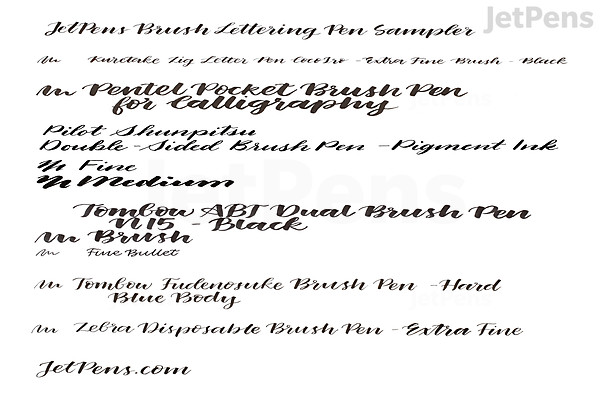 JetPens
JetPens Brush Lettering Pen Sampler
Kuretake Zig Letter Pen CocoIro -Extra Fine Brush - Black
Pentel Pocket Brush Pen
for Calligraphy
Pilot Shunpitsu
Double-Sided Brush Pen -Pigment Ink
Fine
Medium
Tombow ABT Dual Brush Pen
N15 - Black
Brush
Fine Bullet
Tombow Fudenosuke Brush Pen -Hard
Blue Body
Zebra Disposable Brush Pen -Extra Fine
JetPens.com
JetPens